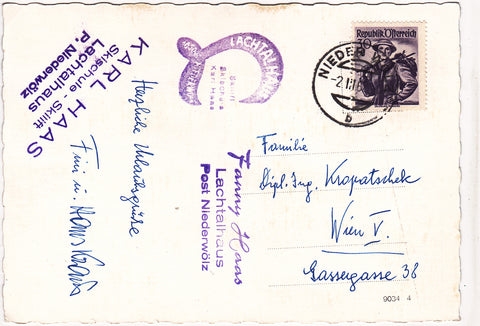 KARL HAAS
Skischule Skilift
Lachtalhaus
P. Niederwölz
Herzliche Urlaubsgrüße
LACHTALHAUS
Skilift
Skischule
Karl Haas
Fanny Haas
Lachtalhaus
Post Niederwölz
Republik Österreich
30
NIEDER
b
Familie
Dipl. Ing. Kropatschek
Wien V.
Gassergasse 38
9034 4